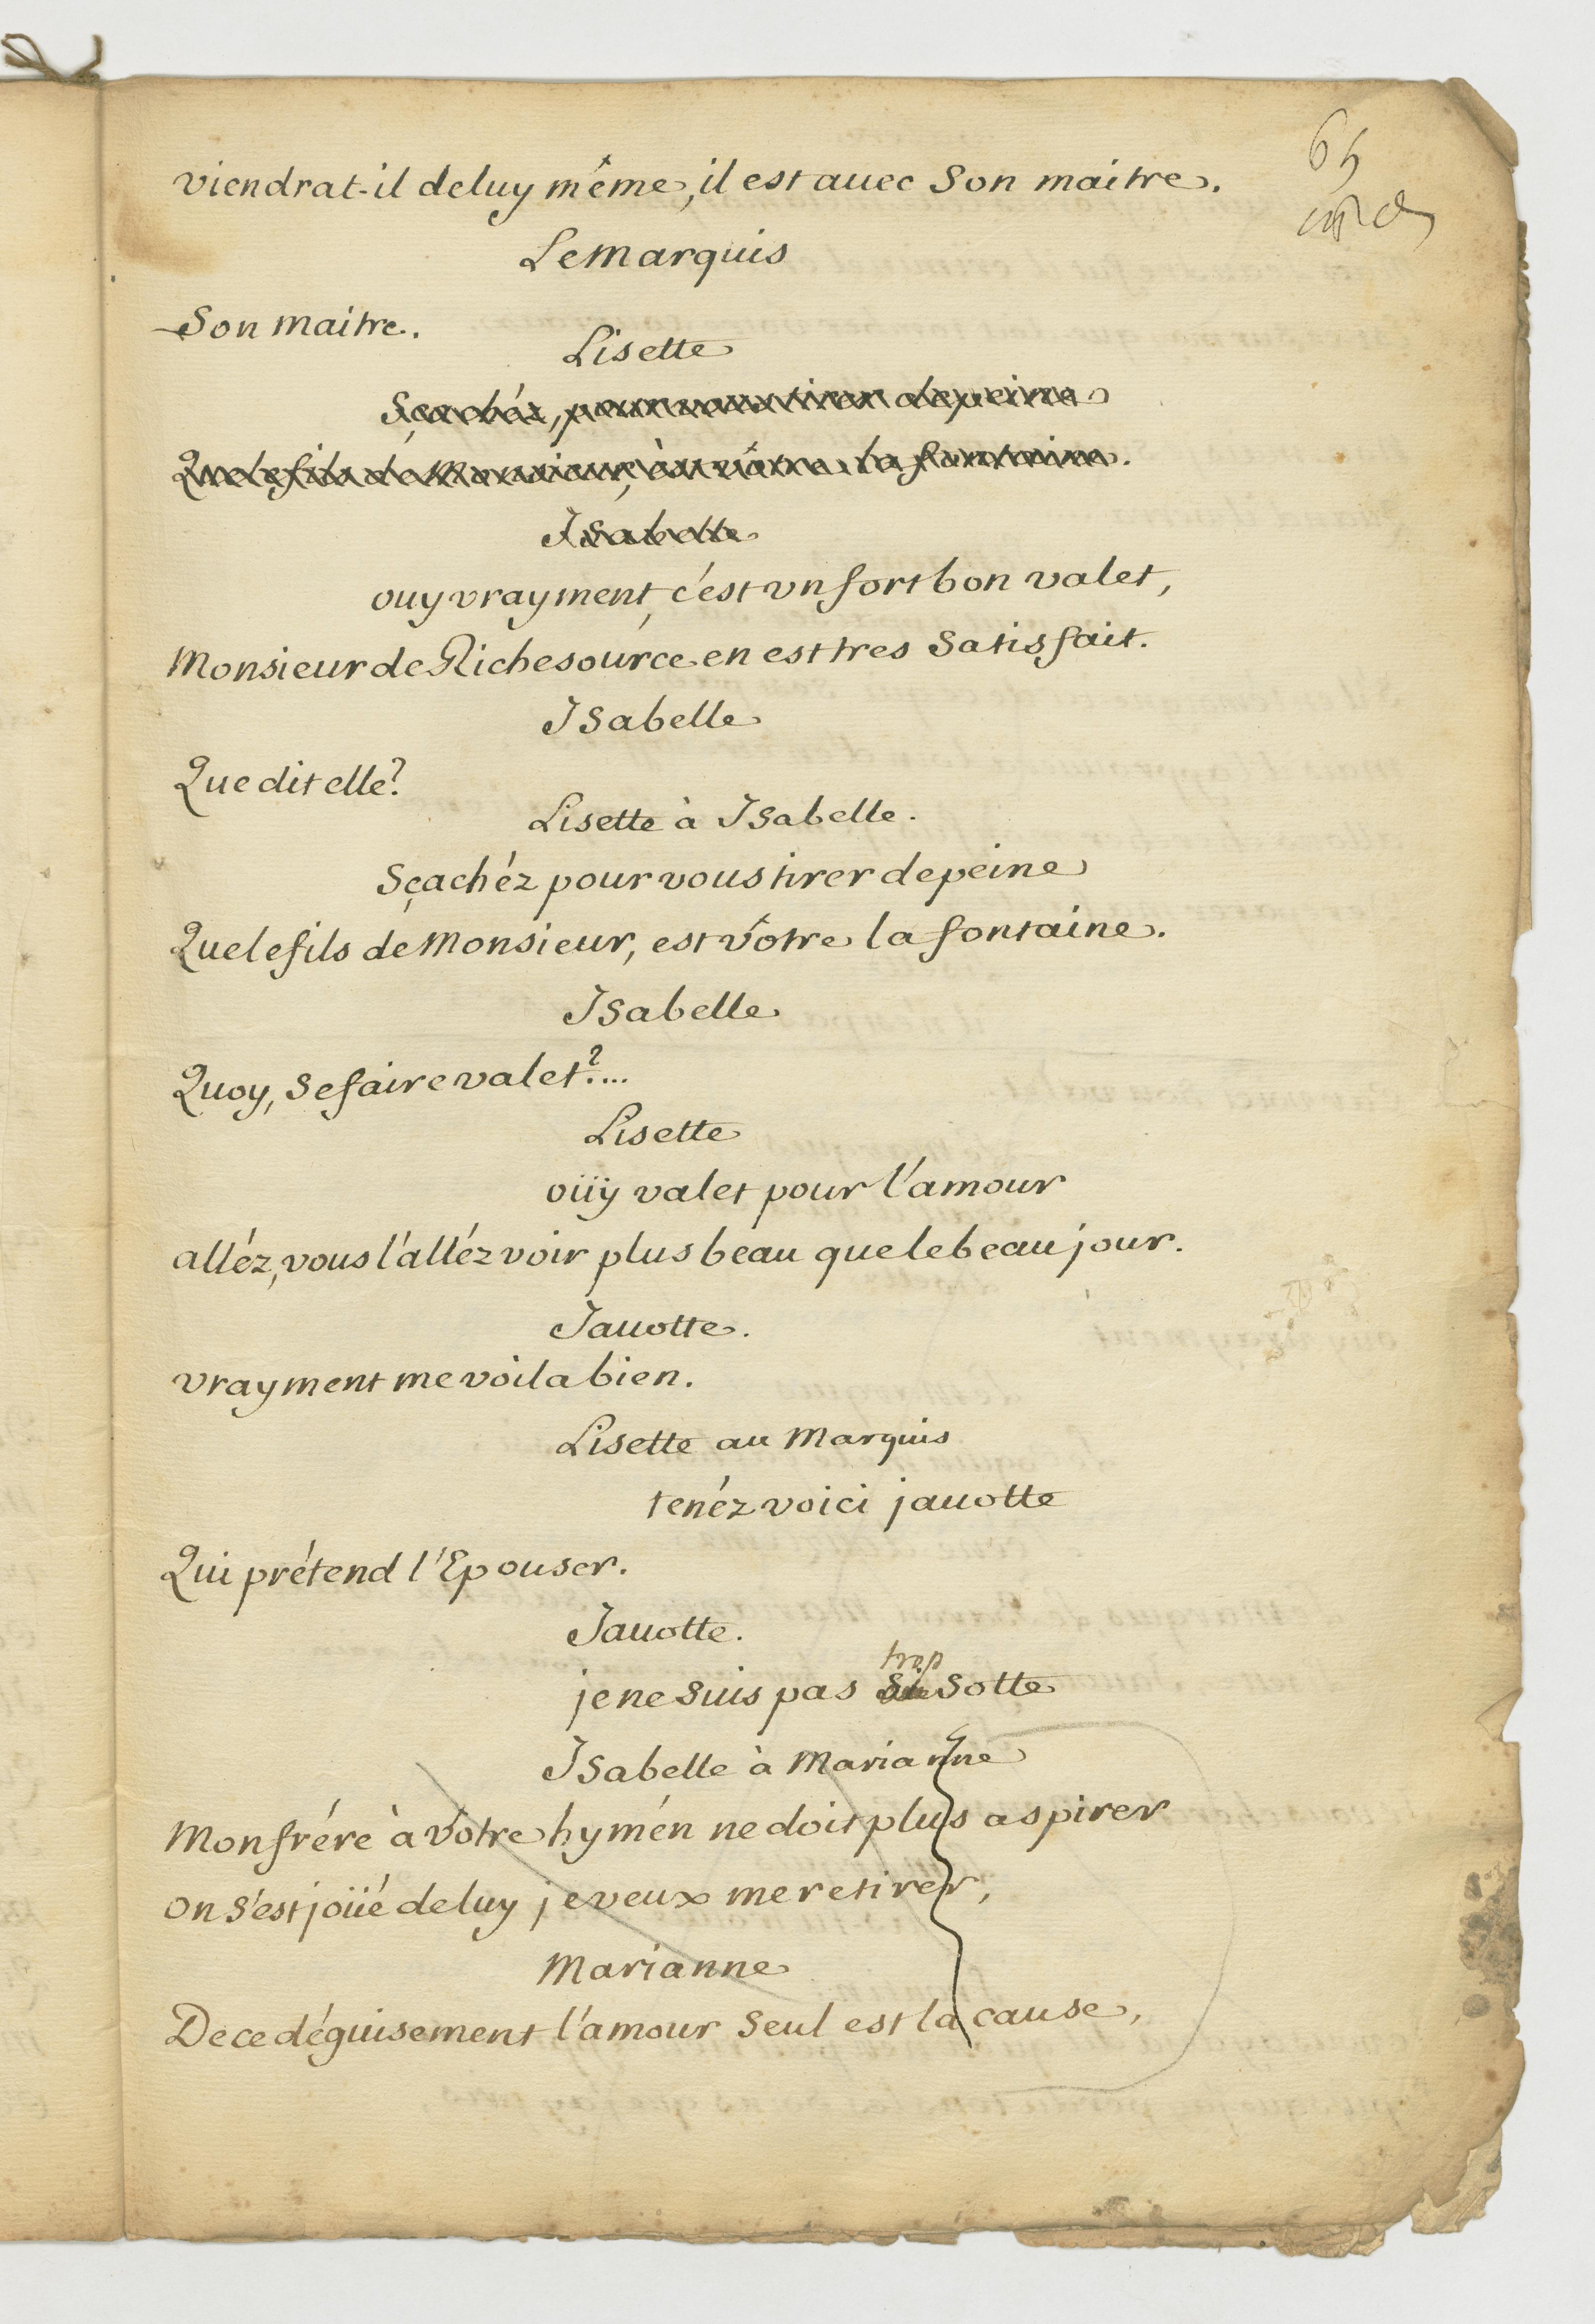 65
viendrat-il de luy même, il est auec Son maitre.
Le marquis
Son maitre.
Lisette
Sçachéz, pour vous tirer de peine
Que le fils de Monsieur, est vôtre la fontaine.
Isabelle
ouy vrayment, c'est vn fort bon valet,
Monsieur de Richesource en est tres Satisfait.
Isabelle
Que dit elle?
Lisette à Isabelle.
Sçachéz pour vous tirer de peine
Que le fils de Monsieur, est vôtre la fontaine.
Isabelle
Quoy, Se faire valet?...
Lisette
oüy valet pour l'amour
alléz, vous l'alléz voir plus beau que le beau jour.
Jauotte.
vrayment me voila bien.
Lisette au Marquis
tenéz voici jauotte
Qui prétend l'Epouser.
Jauotte.
trop
je ne Suis pas Si Sotte
Isabelle à Marianne
Mon frére à vôtre hymén ne doit plus aspirer
on s'est joüé de luy je veux me retirer,
Marianne
De ce déguisement l'amour Seul est la cause,